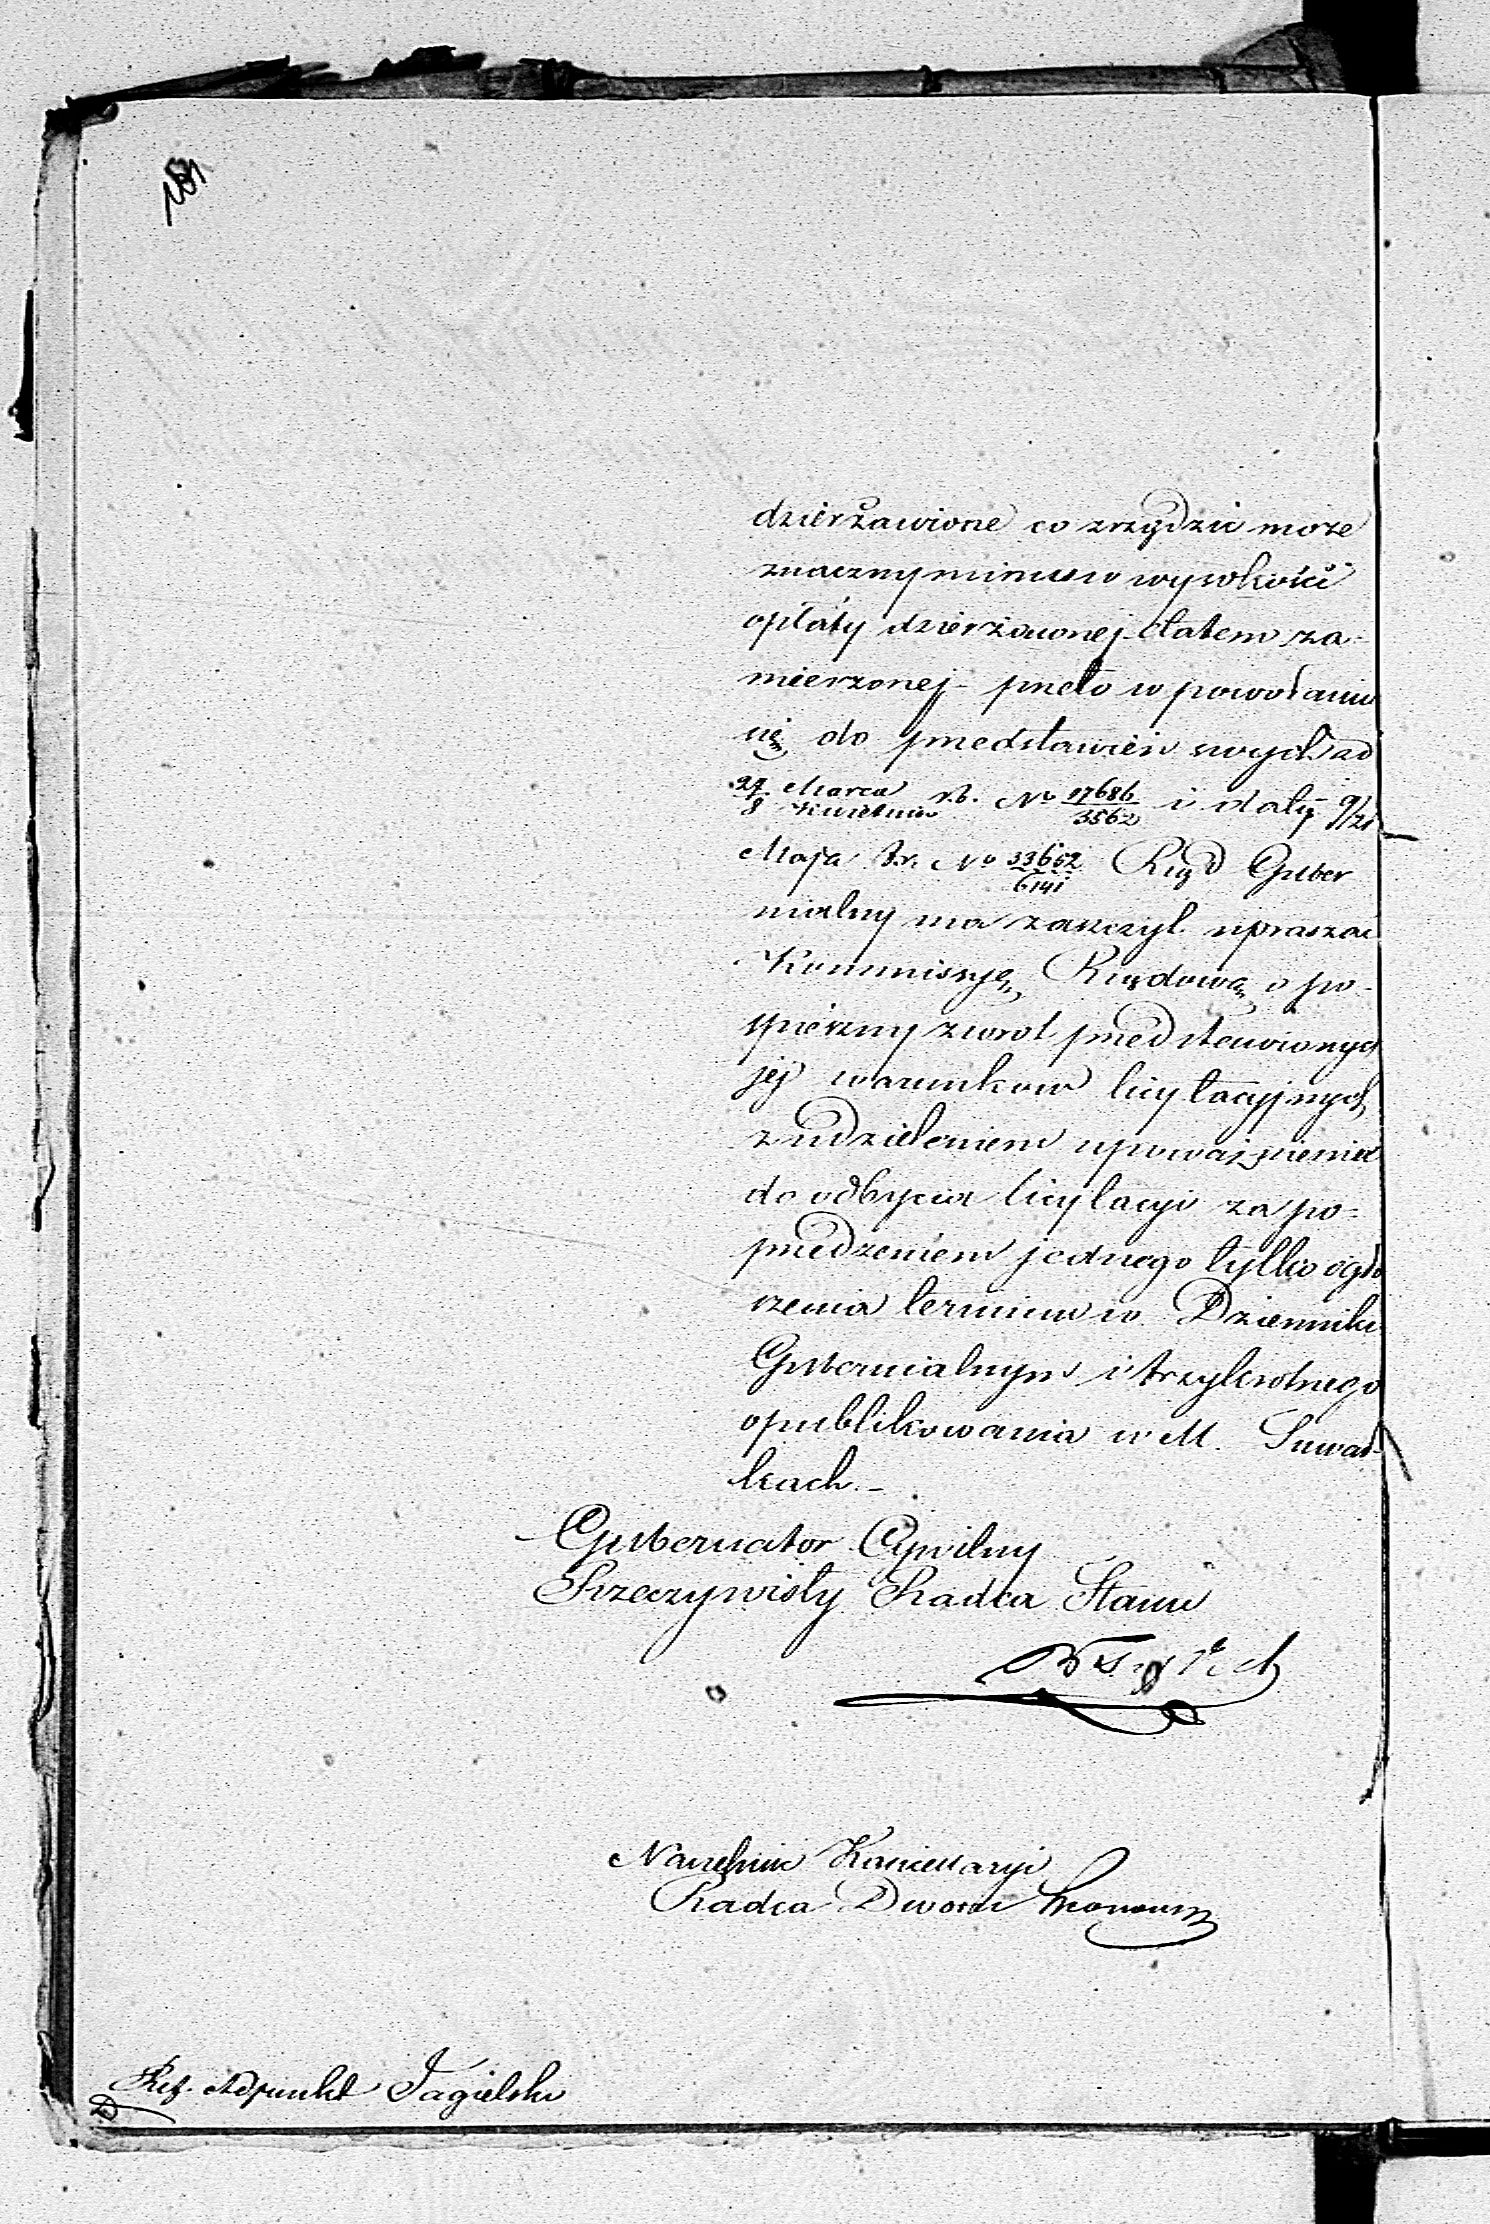 181
dzierżawione co zrządzić może
znaczny minus w wysokości
opłaty dzierżawnej Etatem za-
mierzonej - przeto w powołaniu
się do przedstawień swych z d
27 Marca / 8 Kwietnia r.b. No 17686/3562 i daty 9/21
Maja t.r. No 33652/6141 Rząd Guber
nialny ma zaszczyt upraszać
Kommissyę Rządową o po-
spieszny zwrot przedstawionych
jéj warunków licytacyjnych
z udzieleniem upoważnienia
do odbycia licytacyi za po-
przedzeniem jednego tylko ogło
szenia terminu w Dzienniku
Gubernialnym i trzykrotnego
opublikowania w M. Suwał-
kach. -
Gubernator Cywilny
Rzeczywisty Radca Stanu
Naczelnik Kancellaryi
Radca Dworu
Ref. Adjunkt Jagielski